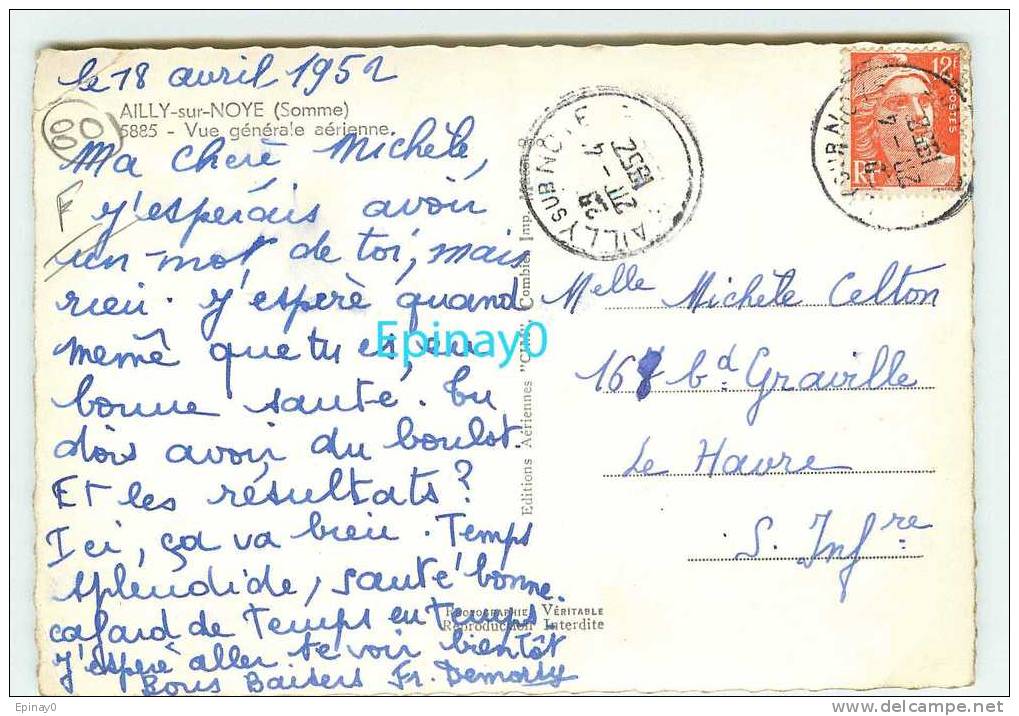 le 18 avril 1952
AILLY-sur-NOYE (Somme)
5885 - Vue générale aérienne.
Ma chère Michèle,
J'espérais avoir
un mot de toi, mais
rien. J'espère quand
même que tu es, en
bonne santé. Tu
dois avoir du boulot.
Et les résultats?
Ici, ça va bien. Temps
splendide, santé bonne.
cafard de temps en temps
J'espère aller te voir bientôt
Bons Baisers Fr.
F
00
Editions Aériennes "CIM", Combier Imp.
PHOTOGRAPHIE VÉRITABLE
Reproduction Interdite
AILLY SUR NOYE
20 - 4
1952
12F
POSTES
RF
Melle Michèle Celton
167 bd Graville
Le Havre
S. Infre
Epinay0
Epinay0
www.delcampe.net